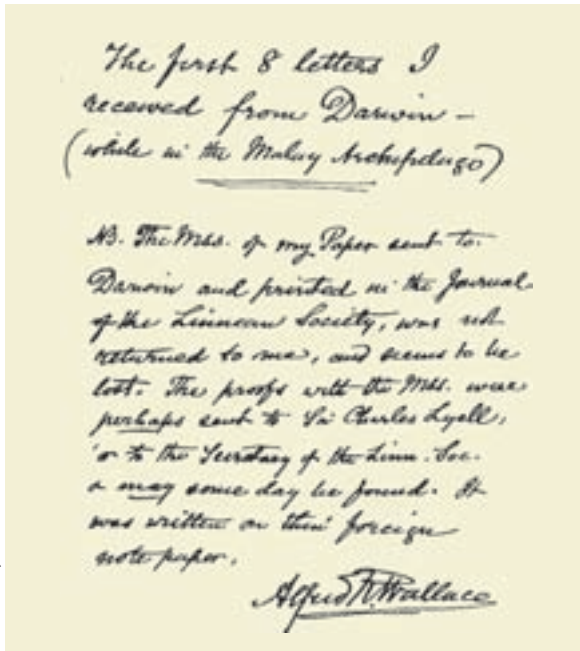 The first 8 letters I
received from Darwin –
(while in the Malay Archipelago)
NB. The Mss. of my Paper sent to
Darwin and printed in the Journal
of the Linnean Society, was not
returned to me, and seems to be
lost. The proofs with the Mss. were
perhaps sent to Sir Charles Lyell,
or to the Secretary of the Linn. Soc.
& may some day be found. It
was written on thin foreign
note paper.
Alfred R. Wallace